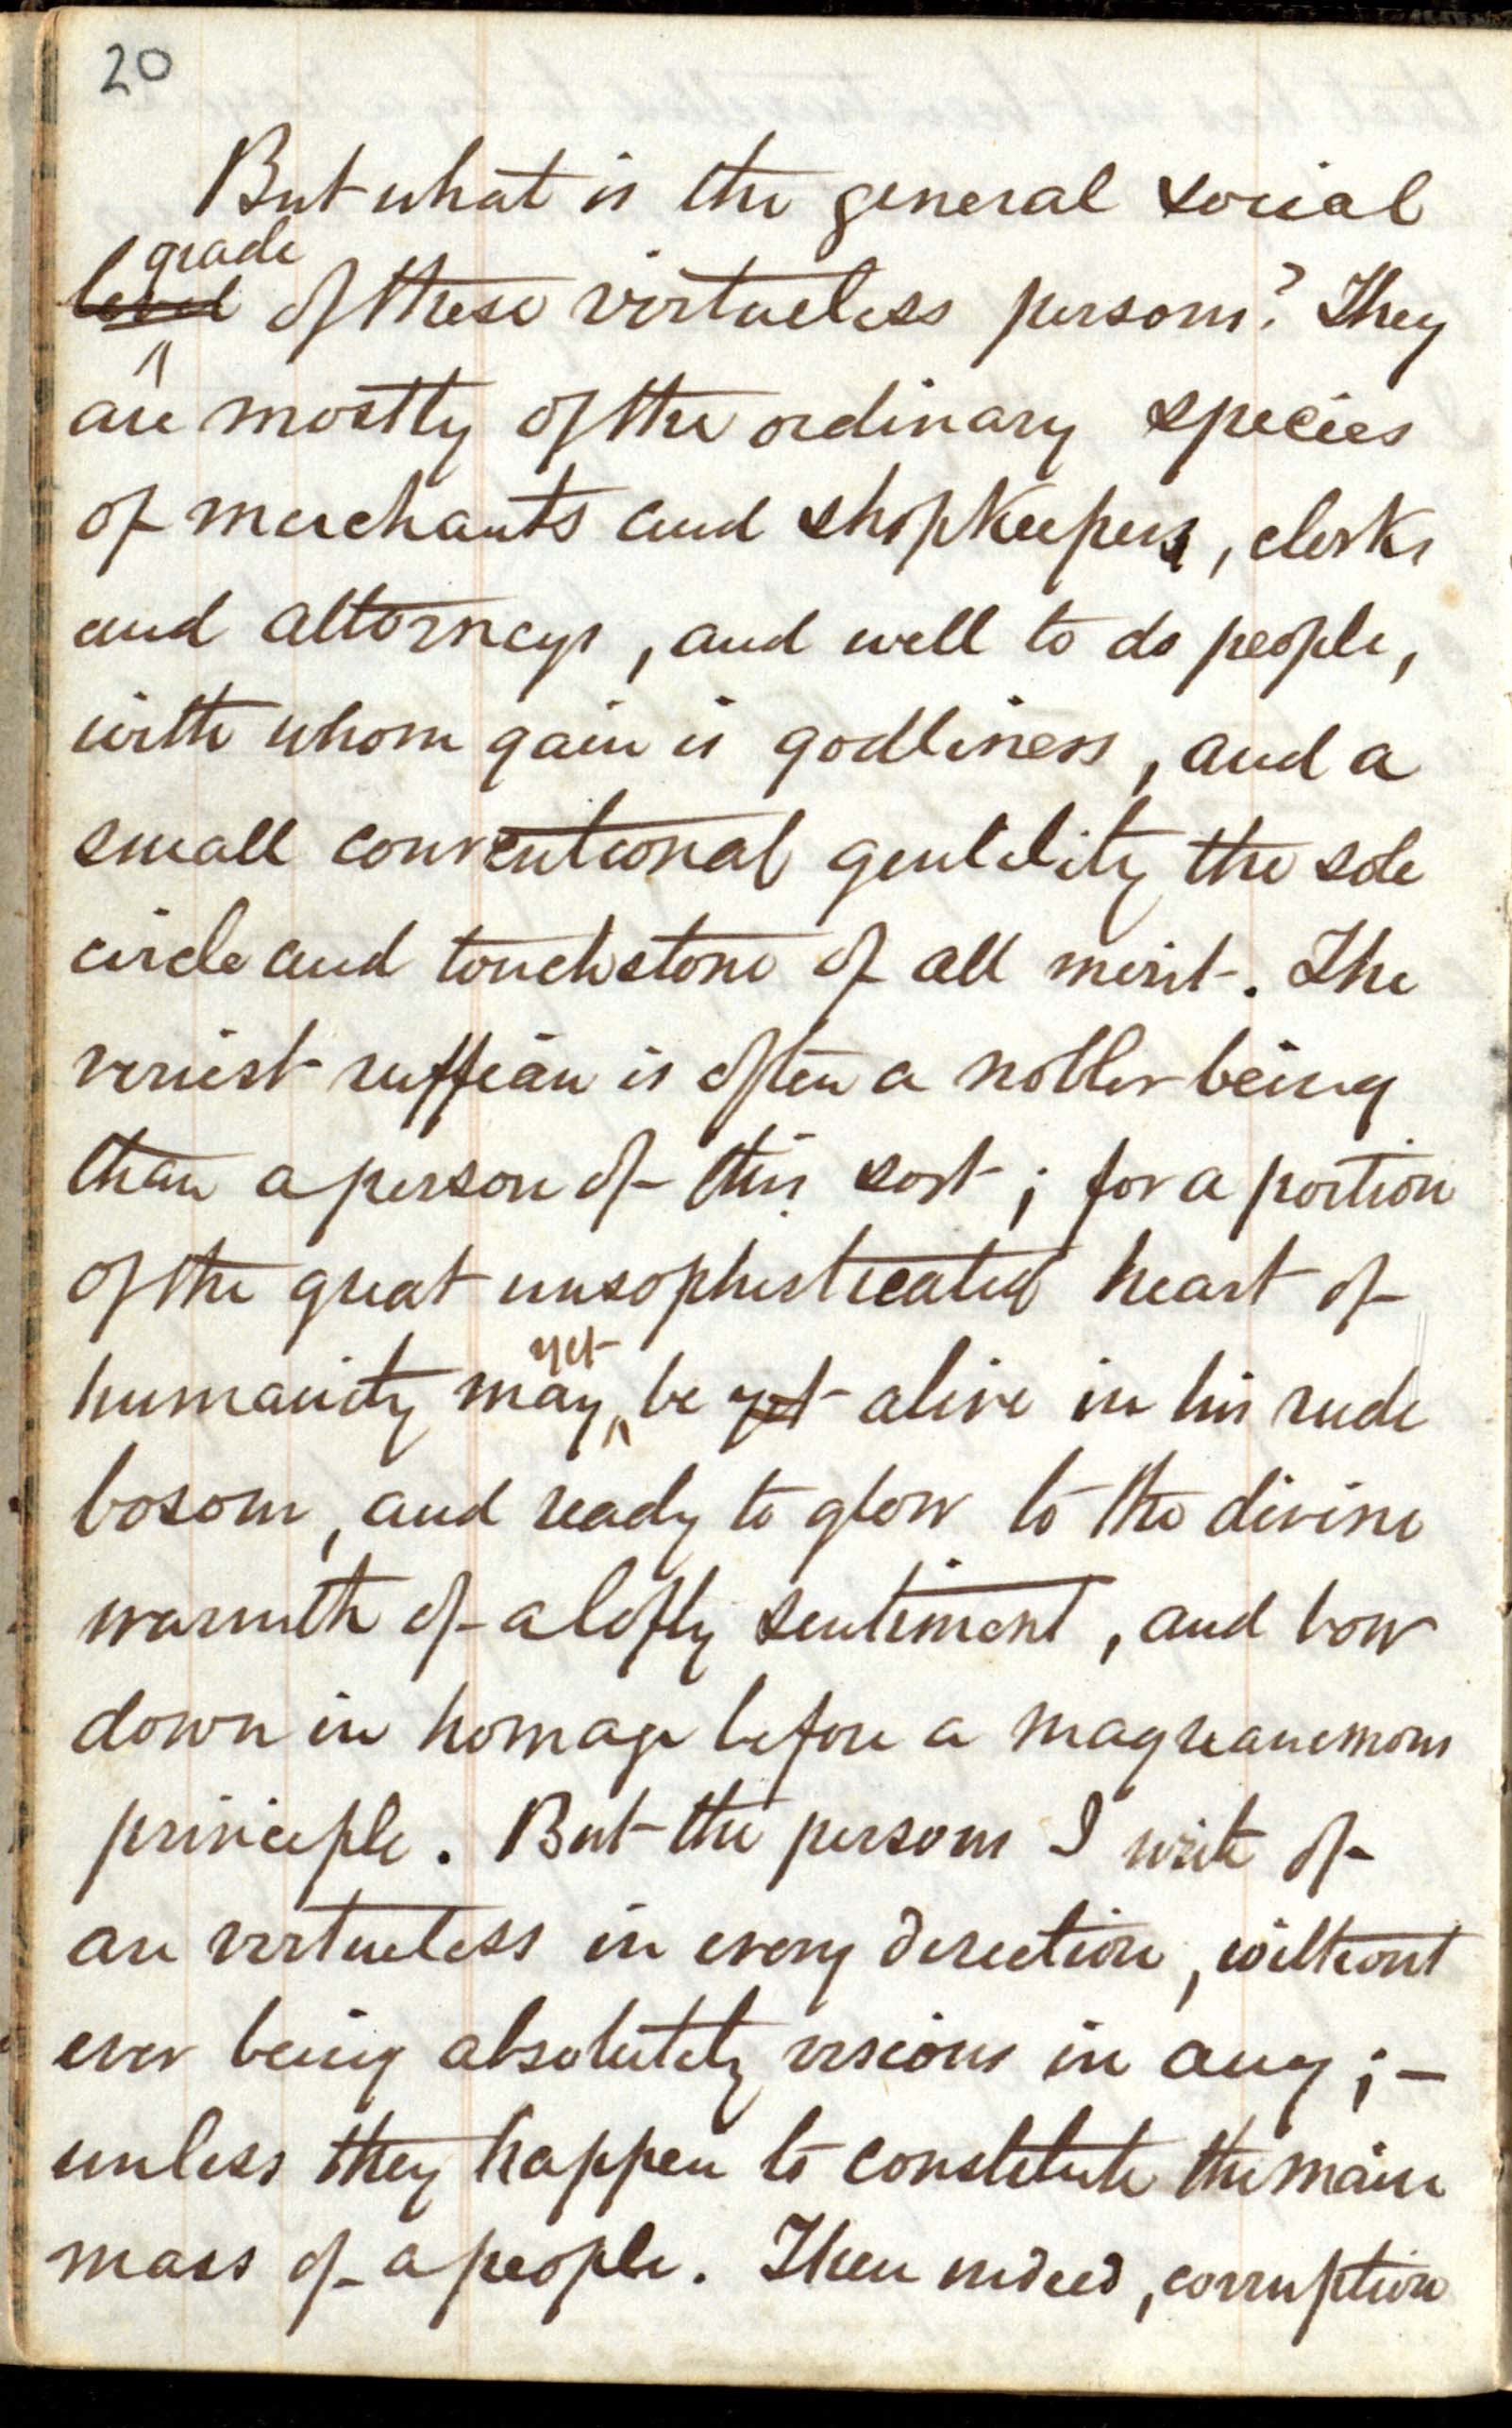 20
But what is the general social
grade
level of these virtueless persons? They
are mostly of the ordinary species
of merchants and shopkeepers, clerks
and attorneys, and well to do people,
with whom gain is godliness, and a
small conventional gentility the sole
circle and touchstone of all merit. The
veriest ruffian is often a nobler being
than a person of this sort; for a portion
of the great unsophisticated heart of
yet
humanity may be yet alive in his rude
bosom, and ready to glow to the divine
warmth of a lofty sentiment, and bow
down in homage before a magnanimous
principle. But the persons I write of
are virtueless in every direction, without
ever being absolutely viscious in any;—
unless they happen to constitute the main
mass of a people. Then indeed, corruption